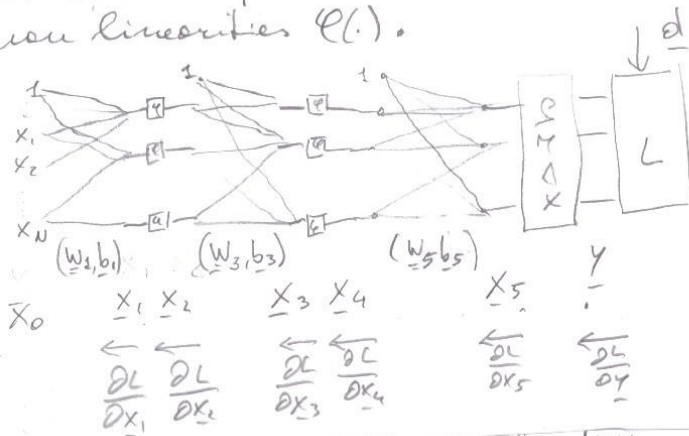 non linearities φ(.).
d
1 1. 1
x₁ φ φ
x₂ φ φ SMAX L
x_N φ φ
(W₁,b₁) (W₃,b₃) (W₅b₅) Y
X₀ X₁ X₂ X₃ X₄ X₅
∂L/∂X₁ ∂L/∂X₂ ∂L/∂X₃ ∂L/∂X₄ ∂L/∂X₅ ∂L/∂Y